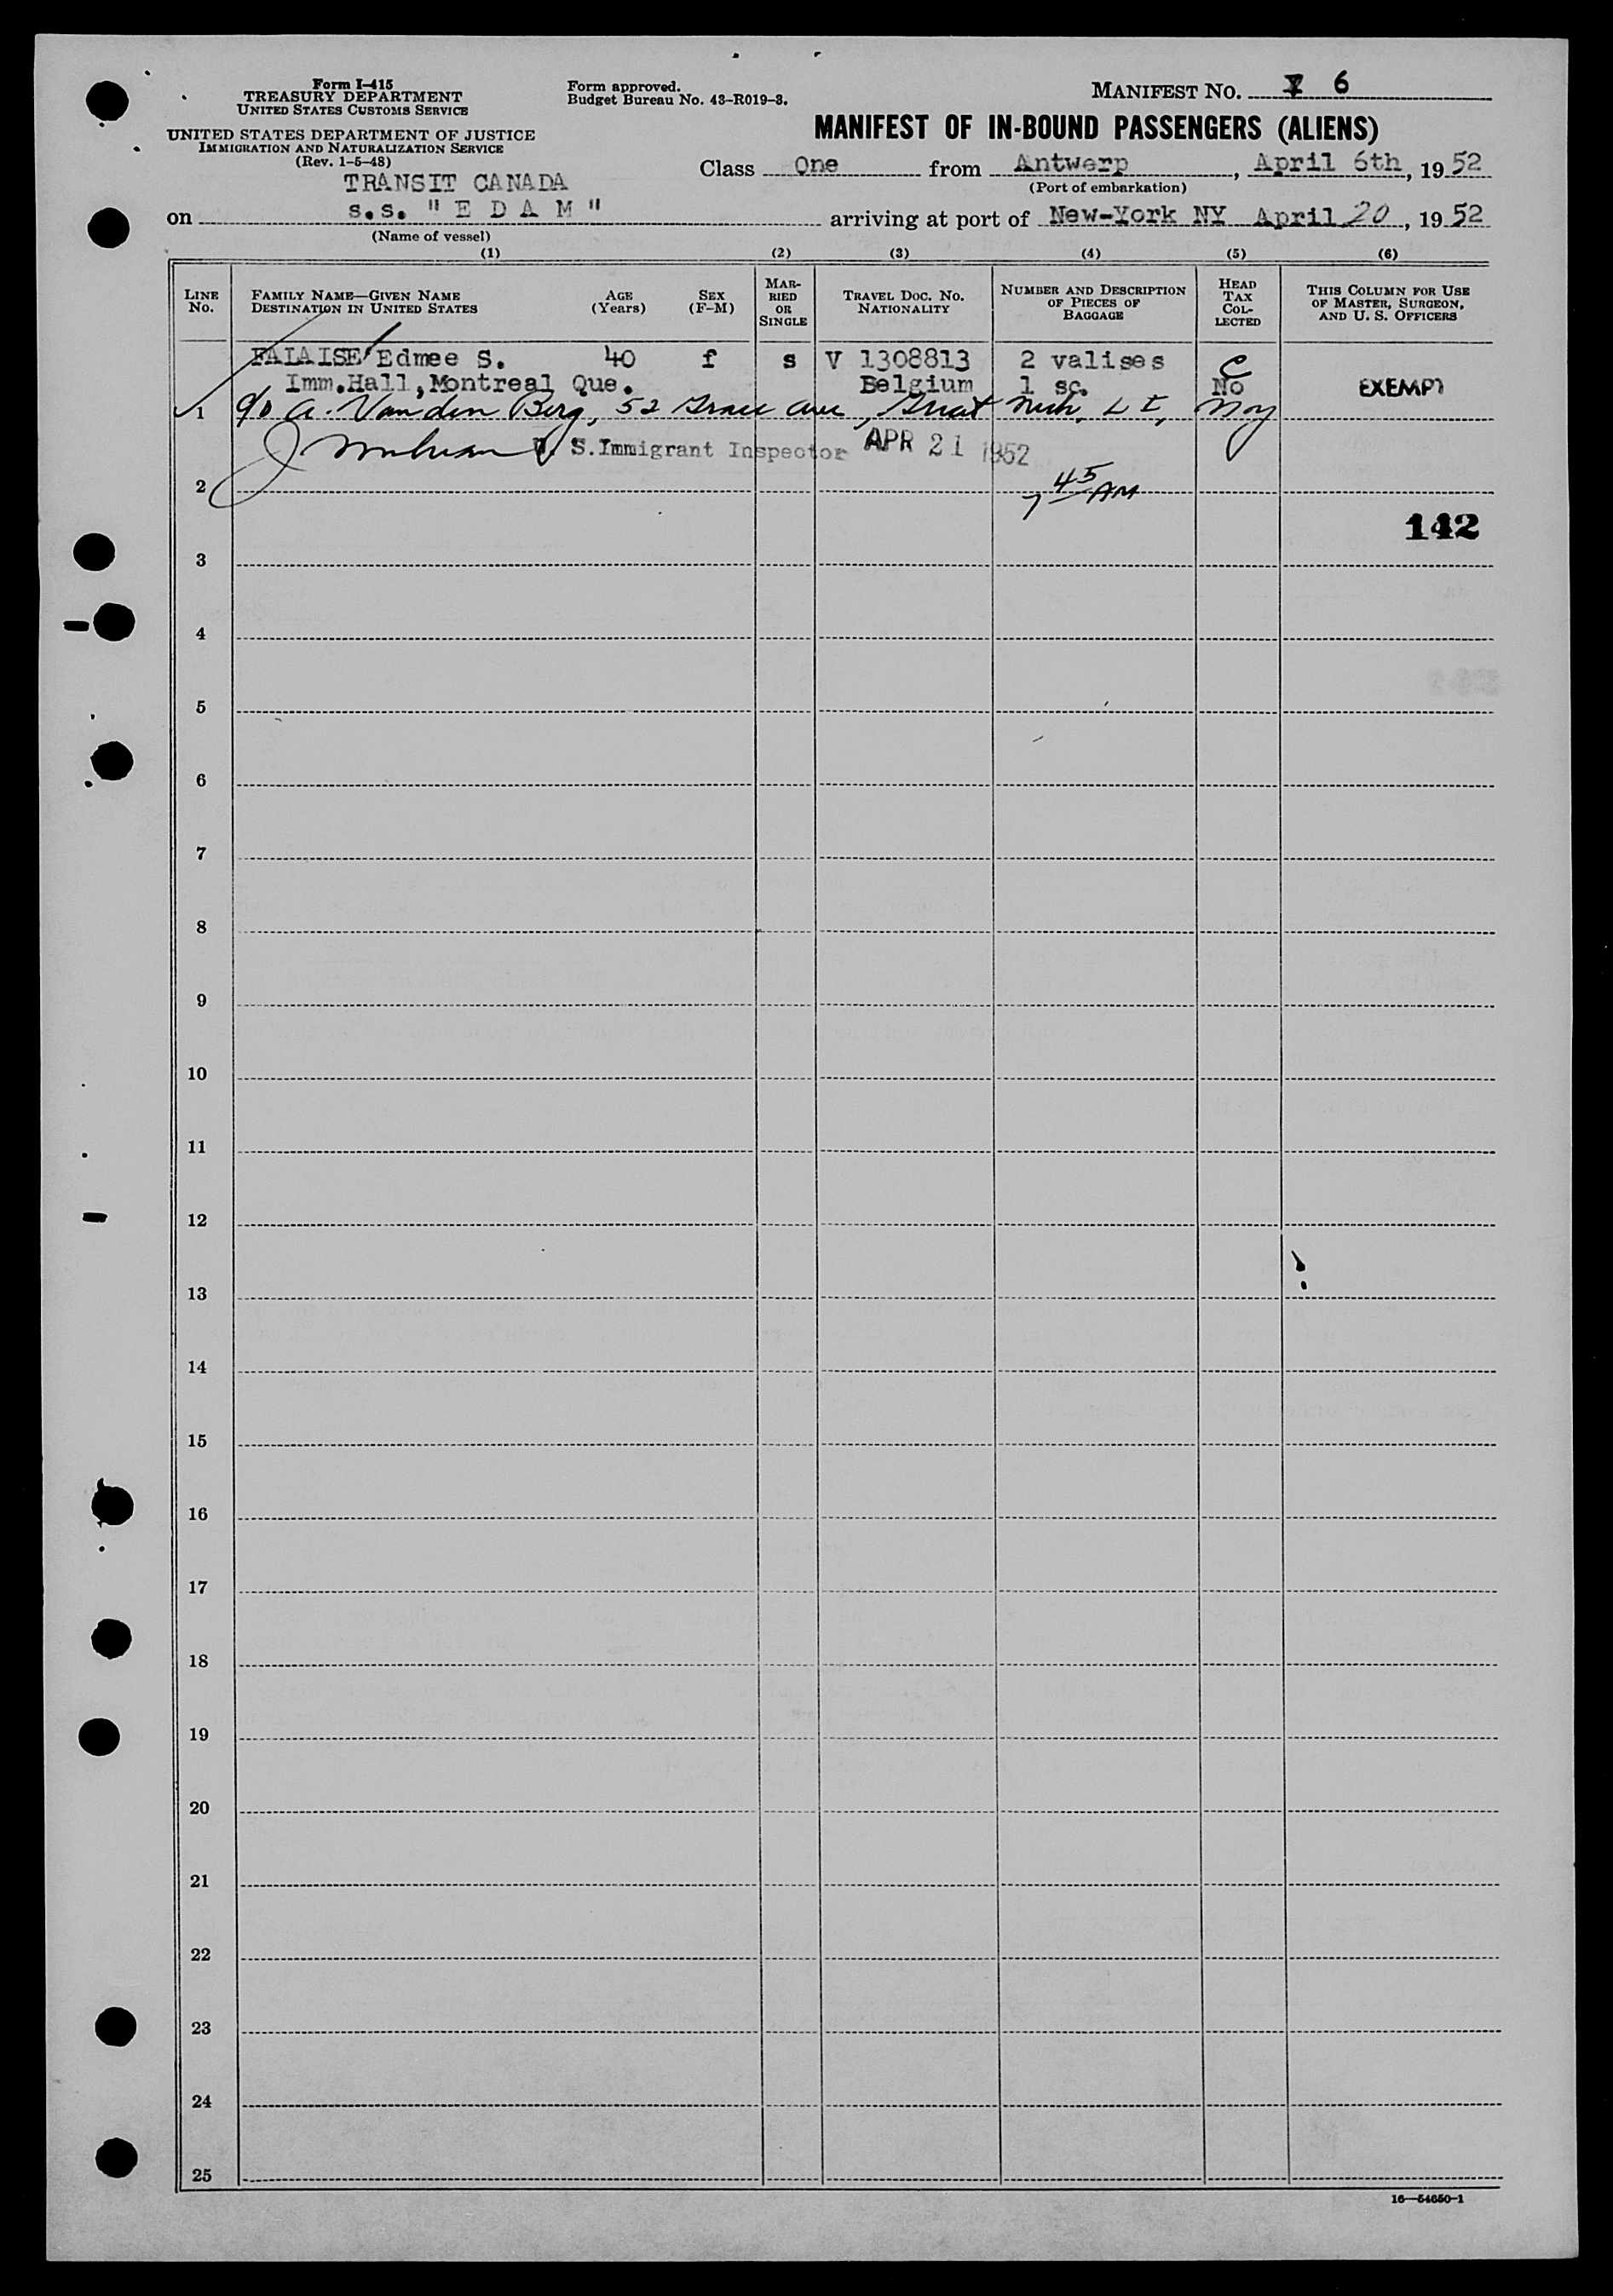 Form I-415
TREASURY DEPARTMENT
UNITED STATES CUSTOMS SERVICE
UNITED STATES DEPARTMENT OF JUSTICE
IMMIGRATION AND NATURALIZATION SERVICE
(Rev. 1-5-48)
Form approved.
Budget Bureau No. 43-R019-3.
MANIFEST NO. 6
MANIFEST OF IN-BOUND PASSENGERS (ALIENS)
Class One from Antwerp, April 6th, 1952
(Port of embarkation)
TRANSIT CANADA
on s.s. "E D A M" arriving at port of New-York NY April 20, 1952
(Name of vessel)
(1) (2) (3) (4) (5) (6)
LINE No.
FAMILY NAME—GIVEN NAME
DESTINATION IN UNITED STATES
AGE (Years)
SEX (F-M)
MARRIED OR SINGLE
TRAVEL DOC. NO. NATIONALITY
NUMBER AND DESCRIPTION OF PIECES OF BAGGAGE
HEAD TAX COLLECTED
THIS COLUMN FOR USE OF MASTER, SURGEON, AND U. S. OFFICERS
FALAISE Edmee S. 40 f s V 1308813 2 valises C
Imm.Hall,Montreal Que. Belgium 1 sc. No EXEMPT
1 c/o A. Vanden Berg, 52 Grace Ave, Great Neck, L I, NY
U. S. Immigrant Inspector APR 21 1952
2 7 45 AM
142
3
4
5
6
7
8
9
10
11
12
13
14
15
16
17
18
19
20
21
22
23
24
25
16—54650-1